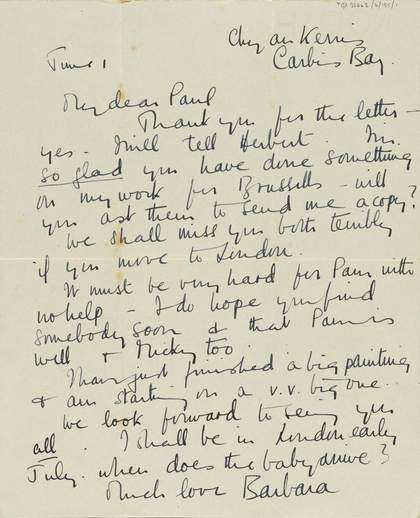 Chy an Kerris
Carbis Bay.
June 1
My dear Paul
Thank you for the letter –
yes – I will tell Herbert. I'm
so glad you have done something
on my work for Brussels – will
you ask them to send me a copy?
We shall miss you both terribly
if you move to London.
It must be very hard for Pam with
no help – I do hope you find
somebody soon & that Pam is
well & Nicky too.
I have just finished a big painting
& am starting on a v.v. big one.
We look forward to seeing you
all. I shall be in London early
July. When does the baby arrive?
Much love Barbara